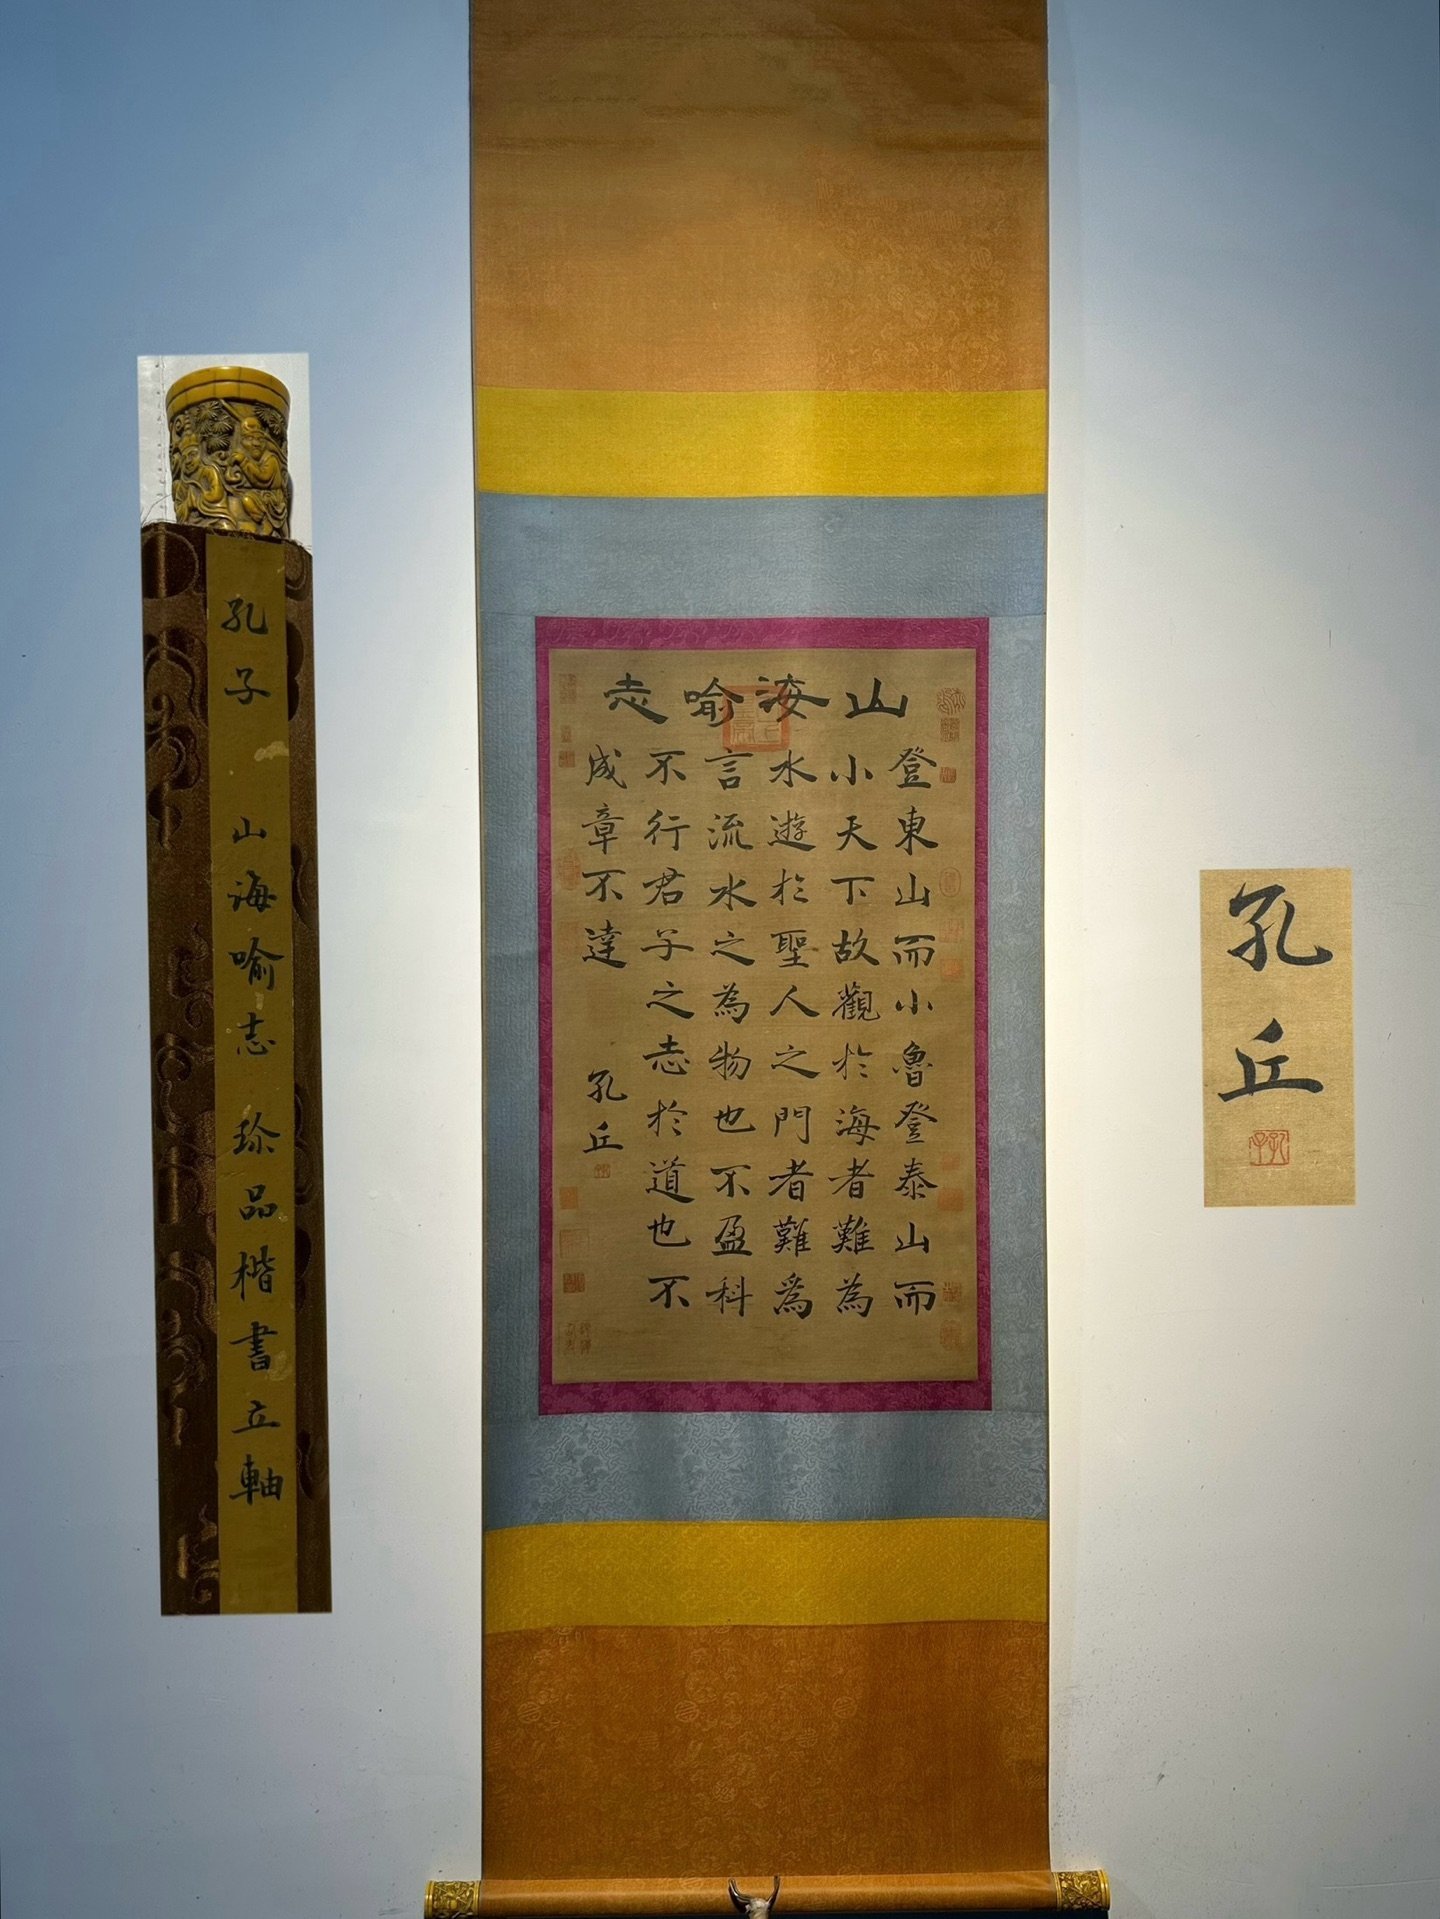 孔子 山海喻志 珍品楷書立軸
山海喻志
登東山而小魯登泰山而
小天下故觀於海者難為
水遊於聖人之門者難爲
言流水之為物也不盈科
不行君子之志於道也不
成章不達
孔丘
孔丘